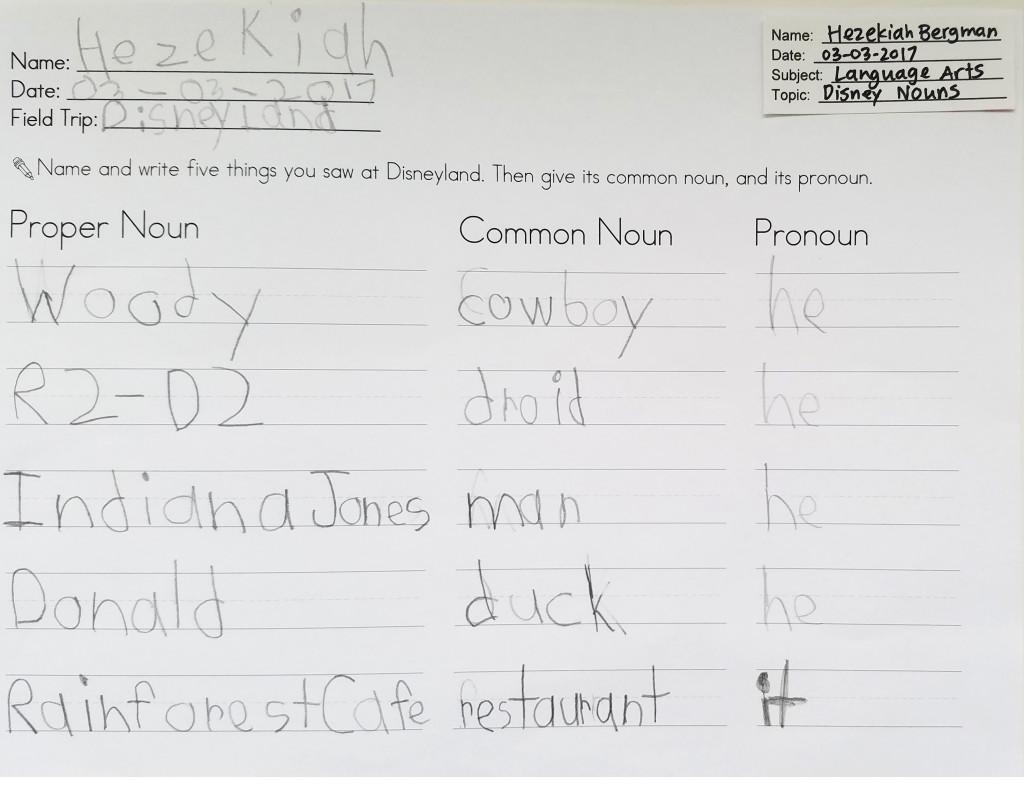 Name: Hezekiah
Date: 03-03-2017
Field Trip: Disneyland
Name: Hezekiah Bergman
Date: 03-03-2017
Subject: Language Arts
Topic: Disney Nouns
Name and write five things you saw at Disneyland. Then give its common noun, and its pronoun.
Proper Noun Common Noun Pronoun
Woody cowboy he
R2-D2 droid he
Indiana Jones man he
Donald duck he
Rainforest Cafe restaurant it